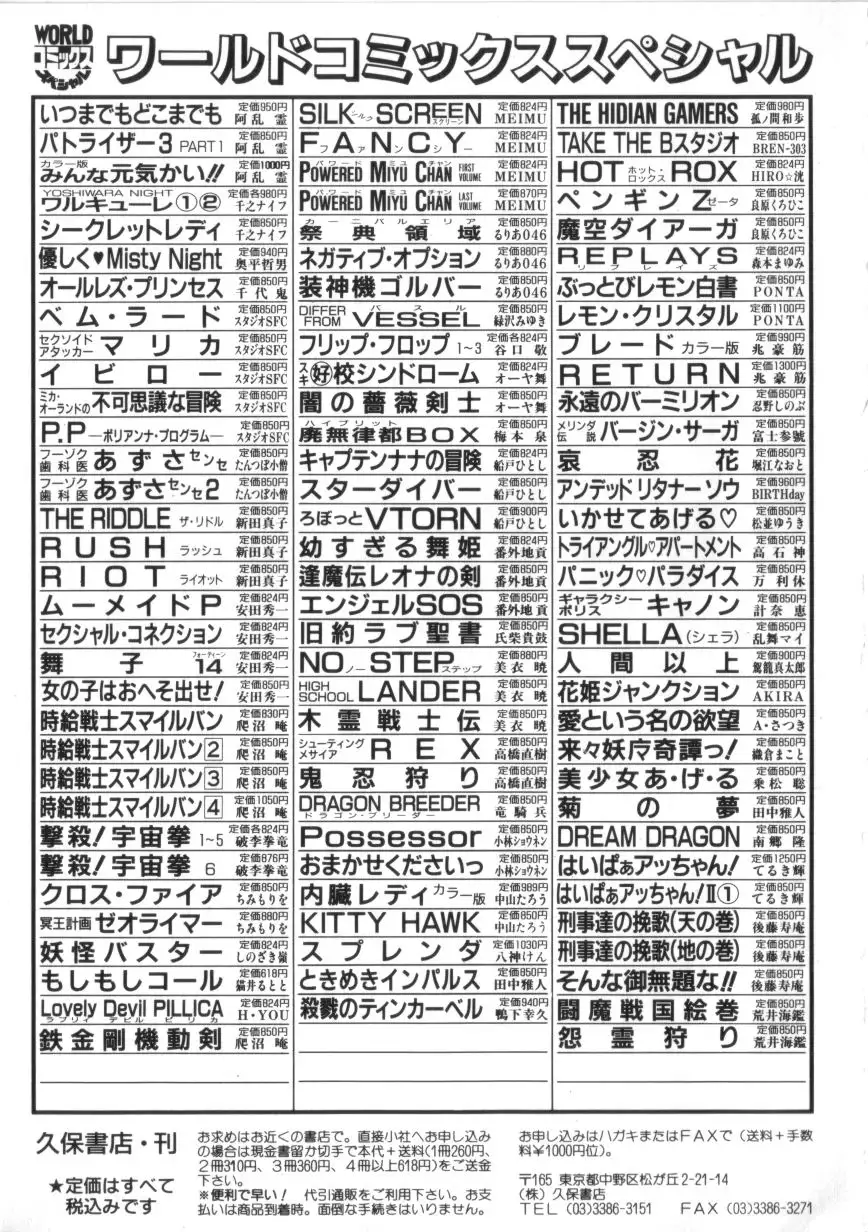 WORLD
コミックス
スペシャル
ワールドコミックススペシャル
いつまでもどこまでも 定価950円 阿乱 霊
パトライザー3 PART1 定価850円 阿乱 霊
カラー版 みんな元気かい!! 定価1000円 阿乱 霊
YOSHIWARA NIGHT ワルキューレ①② 定価各980円 千之ナイフ
シークレットレディ 定価850円 千之ナイフ
優しく♥Misty Night 定価940円 奥平哲男
オールレズ・プリンセス 定価850円 千代 鬼
ベム・ラード 定価850円 スタジオSFC
セクソイドアタッカー マリカ 定価850円 スタジオSFC
イビロー 定価850円 スタジオSFC
ミカ・オーランドの 不可思議な冒険 定価850円 スタジオSFC
P.P ―ポリアンナ・プログラム― 定価850円 スタジオSFC
フーゾク歯科医 あずさセンセ 定価850円 たんつぼ小僧
フーゾク歯科医 あずさセンセ2 定価850円 たんつぼ小僧
THE RIDDLE ザ・リドル 定価850円 新田真子
RUSH ラッシュ 定価850円 新田真子
RIOT ライオット 定価850円 新田真子
ムーメイドP 定価824円 安田秀一
セクシャル・コネクション 定価824円 安田秀一
舞子14 フォーティーン 定価824円 安田秀一
女の子はおへそ出せ! 定価850円 安田秀一
時給戦士スマイルバン 定価830円 爬沼 庵
時給戦士スマイルバン2 定価850円 爬沼 庵
時給戦士スマイルバン3 定価850円 爬沼 庵
時給戦士スマイルバン4 定価1050円 爬沼 庵
撃殺!宇宙拳 1~5 定価各824円 破李拳竜
撃殺!宇宙拳 6 定価876円 破李拳竜
クロス・ファイア 定価850円 ちみもりを
冥王計画 ゼオライマー 定価880円 ちみもりを
妖怪バスター 定価824円 しのざき嶺
もしもしコール 定価618円 猫井るとと
Lovely Devil PILLICA ラブリィ デビル ピリカ 定価824円 H・YOU
鉄金剛機動剣 定価850円 爬沼 庵
SILK シルク SCREEN スクリーン 定価824円 MEIMU
FANCY ファンシー 定価824円 MEIMU
POWERED MIYU CHAN パワード チャン FIRST VOLUME 定価824円 MEIMU
POWERED MIYU CHAN パワード チャン LAST VOLUME 定価870円 MEIMU
祭典領域 カーニバルエリア 定価850円 るりあ046
ネガティブ・オプション 定価880円 るりあ046
装神機ゴルバー 定価850円 るりあ046
DIFFER FROM VESSEL ベスル 定価850円 緑沢みゆき
フリップ・フロップ 1~3 定価各824円 谷口 敬
スキ 好校シンドローム 定価824円 オーヤ舞
闇の薔薇剣士 定価850円 オーヤ舞
廃無律都BOX ハイブリット 定価850円 梅本 泉
キャプテンナナの冒険 定価824円 船戸ひとし
スターダイバー 定価850円 船戸ひとし
ろぼっとVTORN 定価900円 船戸ひとし
幼すぎる舞姫 定価824円 番外地貢
逢魔伝レオナの剣 定価850円 番外地貢
エンジェルSOS 定価850円 番外地貢
旧約ラブ聖書 定価850円 氏柴貴鼓
NO ノー STEP ステップ 定価880円 美衣 暁
HIGH SCHOOL LANDER 定価850円 美衣 暁
木霊戦士伝 定価850円 美衣 暁
シューティングメサイア REX 定価850円 高橋直樹
鬼忍狩り 定価850円 高橋直樹
DRAGON BREEDER ドラゴン・ブリーダー 定価850円 竜騎兵
Possessor 定価850円 小林ショウネン
おまかせくださいっ 定価850円 小林ショウネン
内臓レディ カラー版 定価989円 中山たろう
KITTY HAWK 定価850円 中山たろう
スプレンダ 定価1030円 八神けん
ときめきインパルス 定価850円 田中雅人
殺戮のティンカーベル 定価940円 鴨下幸久
THE HIDIAN GAMERS 定価980円 孤ノ間和歩
TAKE THE Bスタジオ 定価850円 BREN-303
HOT ホット・ロックス ROX 定価824円 HIRO☆洸
ペンギンZ ゼータ 定価850円 良原くろひこ
魔空ダイアーガ 定価850円 良原くろひこ
REPLAYS リプレイズ 定価824円 森本まゆみ
ぶっとびレモン白書 定価850円 PONTA
レモン・クリスタル 定価1100円 PONTA
ブレード カラー版 定価990円 兆豪筋
RETURN 定価1300円 兆豪筋
永遠のバーミリオン 定価850円 忍野しのぶ
メリンダ伝説 バージン・サーガ 定価850円 富士参號
哀忍花 定価850円 堀江なおと
アンデッドリタナーソウ 定価960円 BIRTHday
いかせてあげる♡ 定価850円 松並ゆうき
トライアングル♡アパートメント 定価850円 高石神
パニック♡パラダイス 定価850円 万利休
ギャラクシーポリス キャノン 定価850円 計奈 恵
SHELLA(シェラ) 定価850円 乱舞マイ
人間以上 定価900円 駕籠真太郎
花姫ジャンクション 定価850円 AKIRA
愛という名の欲望 定価850円 A・さつき
来々妖庁奇譚っ! 定価850円 鎌倉まこと
美少女あ・げ・る 定価850円 乗松 聡
菊の夢 定価850円 田中雅人
DREAM DRAGON 定価850円 南郷 隆
はいぱぁアッちゃん! 定価1250円 てるき輝
はいぱぁアッちゃん!Ⅱ① 定価850円 てるき輝
刑事達の挽歌(天の巻) 定価850円 後藤寿庵
刑事達の挽歌(地の巻) 定価850円 後藤寿庵
そんな御無題な!! 定価850円 後藤寿庵
闘魔戦国絵巻 定価850円 荒井海鑑
怨霊狩り 定価850円 荒井海鑑
久保書店・刊
★定価はすべて
税込みです
お求めはお近くの書店で。直接小社へお申し込み
の場合は現金書留か切手で本代+送料(1冊260円、
2冊310円、3冊360円、4冊以上618円)をご送金
下さい。
※便利で早い! 代引通販をご利用下さい。お支
払いは商品到着時。面倒な手続きはいりません。
お申し込みはハガキまたはFAXで(送料+手数
料¥1000円位)。
〒165 東京都中野区松が丘2-21-14
(株)久保書店
TEL (03)3386-3151 FAX (03)3386-3271